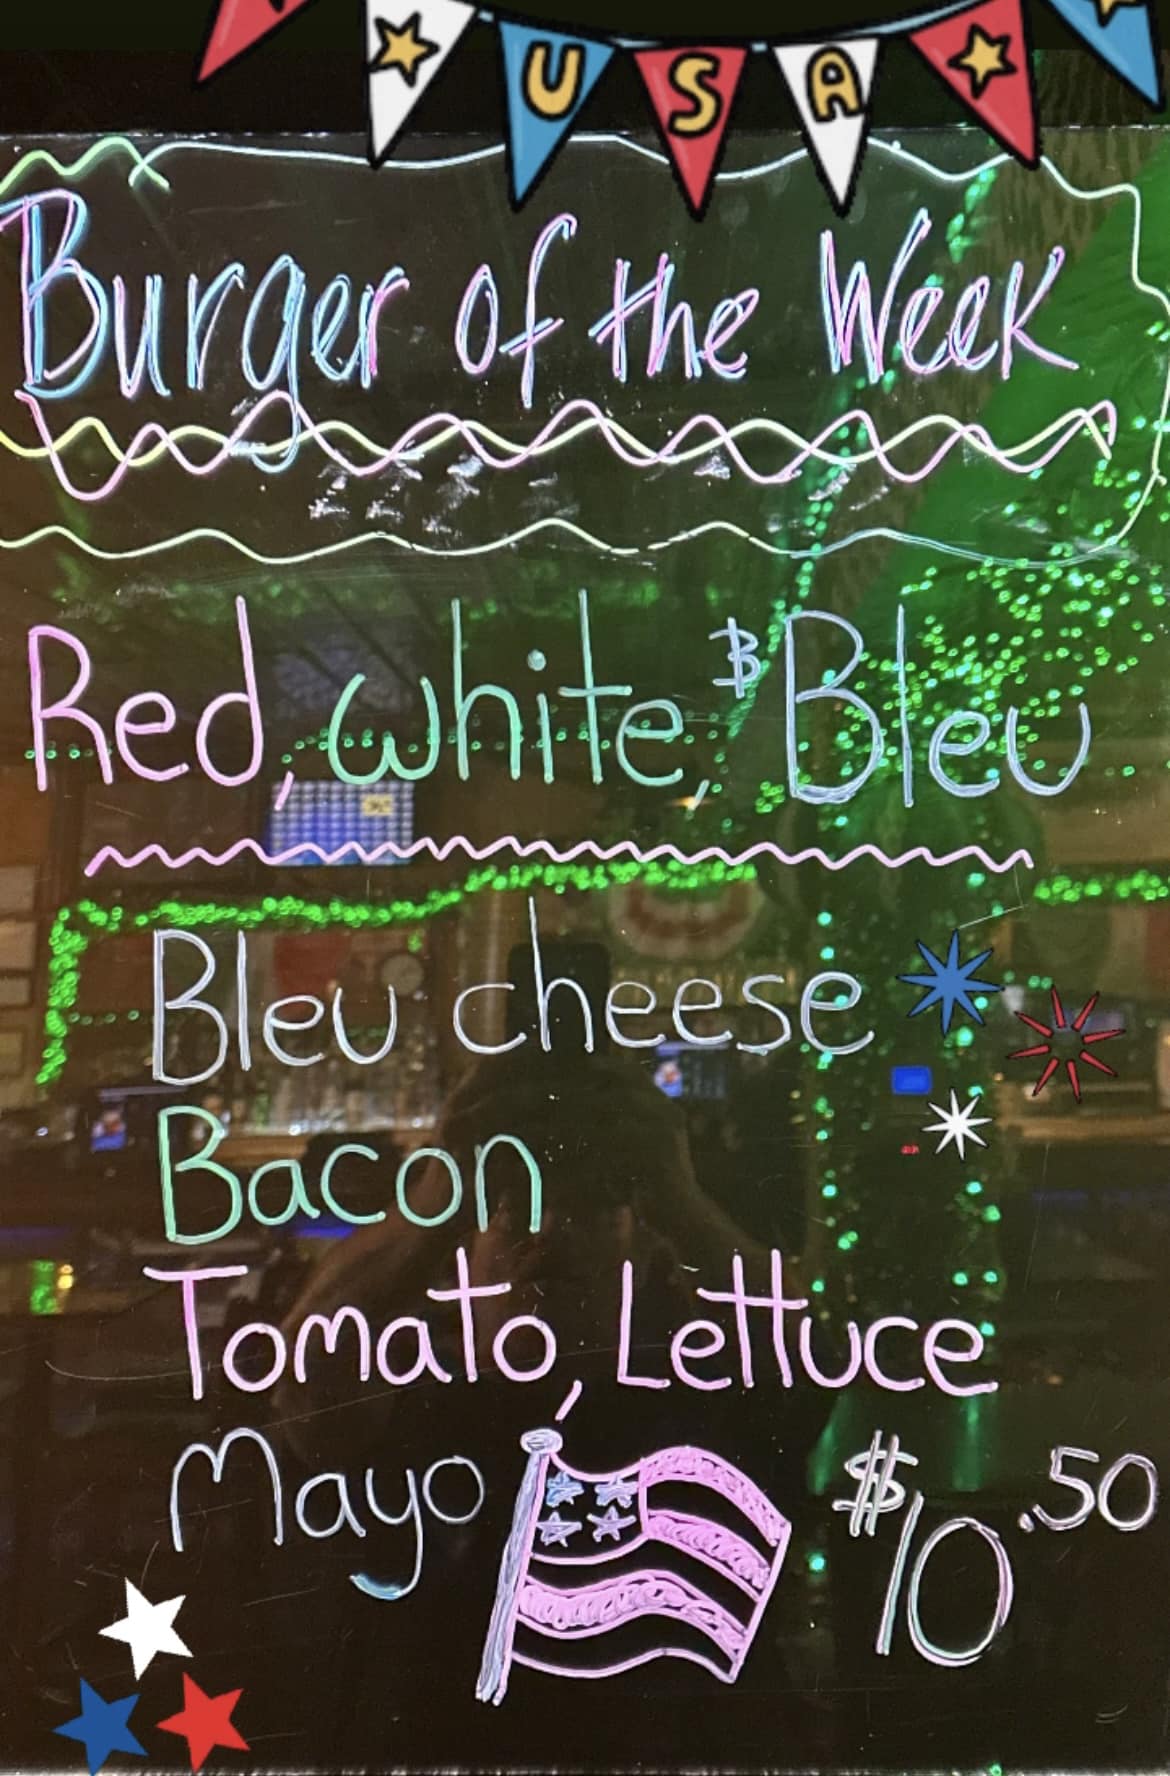 USA
Burger of the Week
Red, white, & Bleu
Bleu cheese
Bacon
Tomato, Lettuce
Mayo $10.50